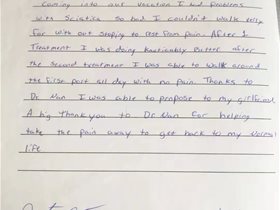 Coming into our vacation I had problems
with Sciatica So bad I couldn't walk very
far with out stoping to rest from pain. After 1
Treatment I was doing noticably better after
the second treatment I was able to walk around
the first port all day with no pain. Thanks to
Dr Nan I was able to propose to my girlfriend
A big Thank you to Dr Nan for helping
take the pain away to get back to my normal
life.